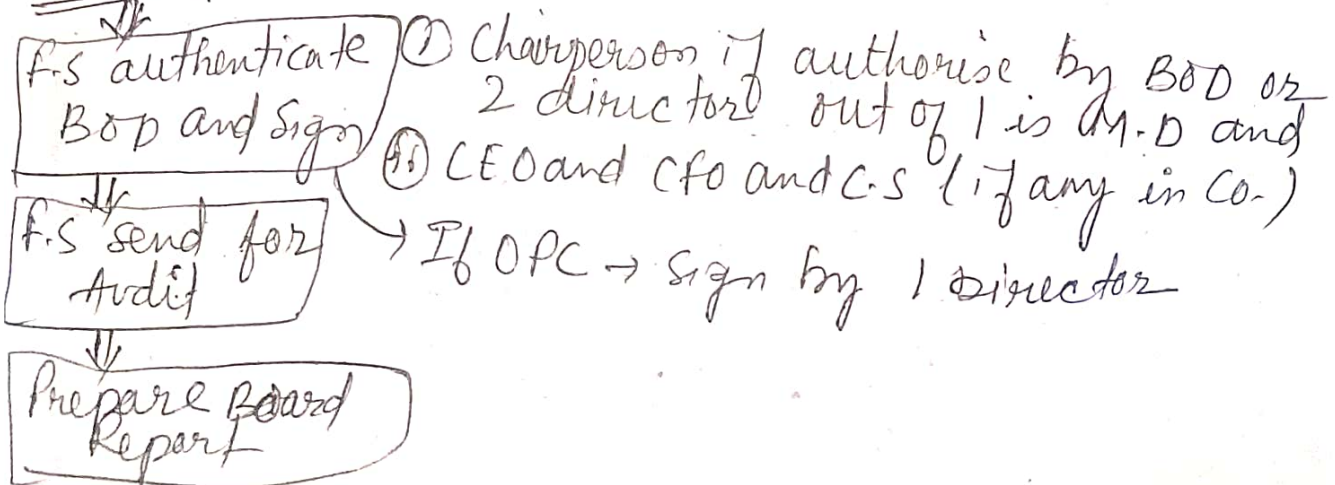 F.S authenticate
BOD and Sign
(i) Chairperson if authorise by BOD or
2 director out of 1 is M.D and
(ii) CEO and CFO and C.S (if any in Co.)
→ If OPC → Sign by 1 Director
F.S send for
Audit
Prepare Board
Report